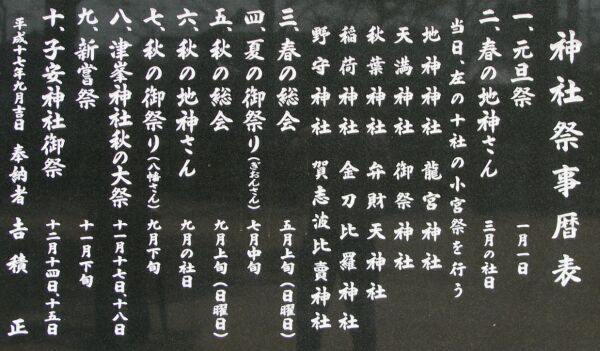 神社祭事暦表
一、元旦祭 一月一日
二、春の地神さん 三月の社日
当日、左の十社の小宮祭を行う
地神神社 龍宮神社
天満神社 御祭神社
秋葉神社 弁財天神社
稲荷神社 金刀比羅神社
野守神社 賀志波比賣神社
三、春の総会 五月上旬(日曜日)
四、夏の御祭り(ぎおんさん) 七月中旬
五、秋の総会 九月上旬(日曜日)
六、秋の地神さん 九月の社日
七、秋の御祭り(八幡さん) 九月下旬
八、津峯神社秋の大祭 十一月十七日、十八日
九、新嘗祭 十一月下旬
十、子安神社御祭 十二月十四日、十五日
平成十七年九月吉日 奉納者 吉積 正